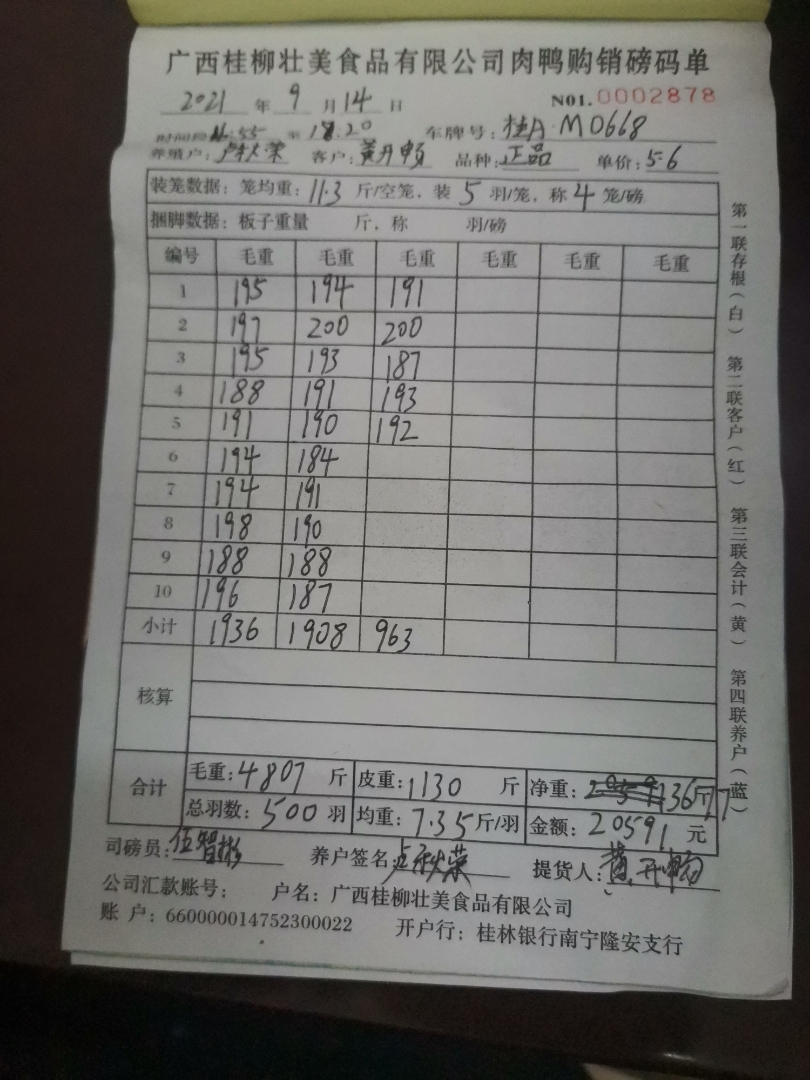 广西桂柳壮美食品有限公司肉鸭购销磅码单
2021 年 9 月 14 日 N01.0002878
至 18.20 车牌号: 桂A·M0668
养殖户: 卢秋荣 客户: 黄开畅 品种: 正品 单价: 5.6
装笼数据: 笼均重: 11.3 斤/空笼, 装 5 羽/笼, 称 4 笼/磅
捆脚数据: 板子重量 斤, 称 羽/磅
编号 毛重 毛重 毛重 毛重 毛重 毛重
1 195 194 191
2 197 200 200
3 195 193 187
4 188 191 193
5 191 190 192
6 194 184
7 194 191
8 198 190
9 188 188
10 196 187
小计 1936 1908 963
核算
合计
毛重: 4807 斤 皮重: 1130 斤 净重: 斤
总羽数: 500 羽 均重: 7.35 斤/羽 金额: 20591 元
司磅员: 伍智彬 养户签名: 卢秋荣 提货人: 黄开畅
公司汇款账号: 户名: 广西桂柳壮美食品有限公司
账 户: 660000014752300022 开户行: 桂林银行南宁隆安支行
第一联存根(白) 第二联客户(红) 第三联会计(黄) 第四联养户(蓝)